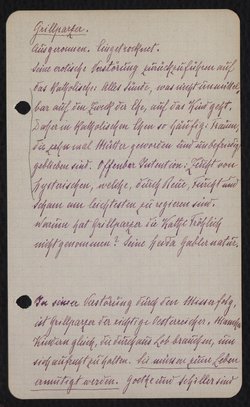 Grillparzer.
Ausgeronnen. Eingetrocknet.
Seine erotische Verstörung zurückzuführen auf
das Katholische: Alles Sünde, was nicht unmittel-
bar auf den Zweck der Ehe, auf das Kind geht.
Daher in katholischen Ehen so häufig: Frauen,
die zehnmal Mütter geworden und unbefriedigt
geblieben sind. Offenbar Intention: Zucht von
Hysterischen, welche durch Reue, Furcht und
Scham am leichtesten zu regieren sind.
Warum hat Grillparzer die Kathi Fröhlich
nicht genommen? Seine Hedda Gablernatur.
In seiner Verstörung durch den Misserfolg,
ist Grillparzer der richtige Oesterreicher. Manche
Kindern gleich, die durchaus Lob brauchen, um
sich aufrecht zu halten. Sie müssen zum Leben
ermutigt werden. Goethe und Schiller sind